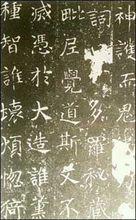 神護而
詞 多羅秘藏
毗尼覺道斯文不
滅憑於大造誰薰
種智誰壞煩惱猗